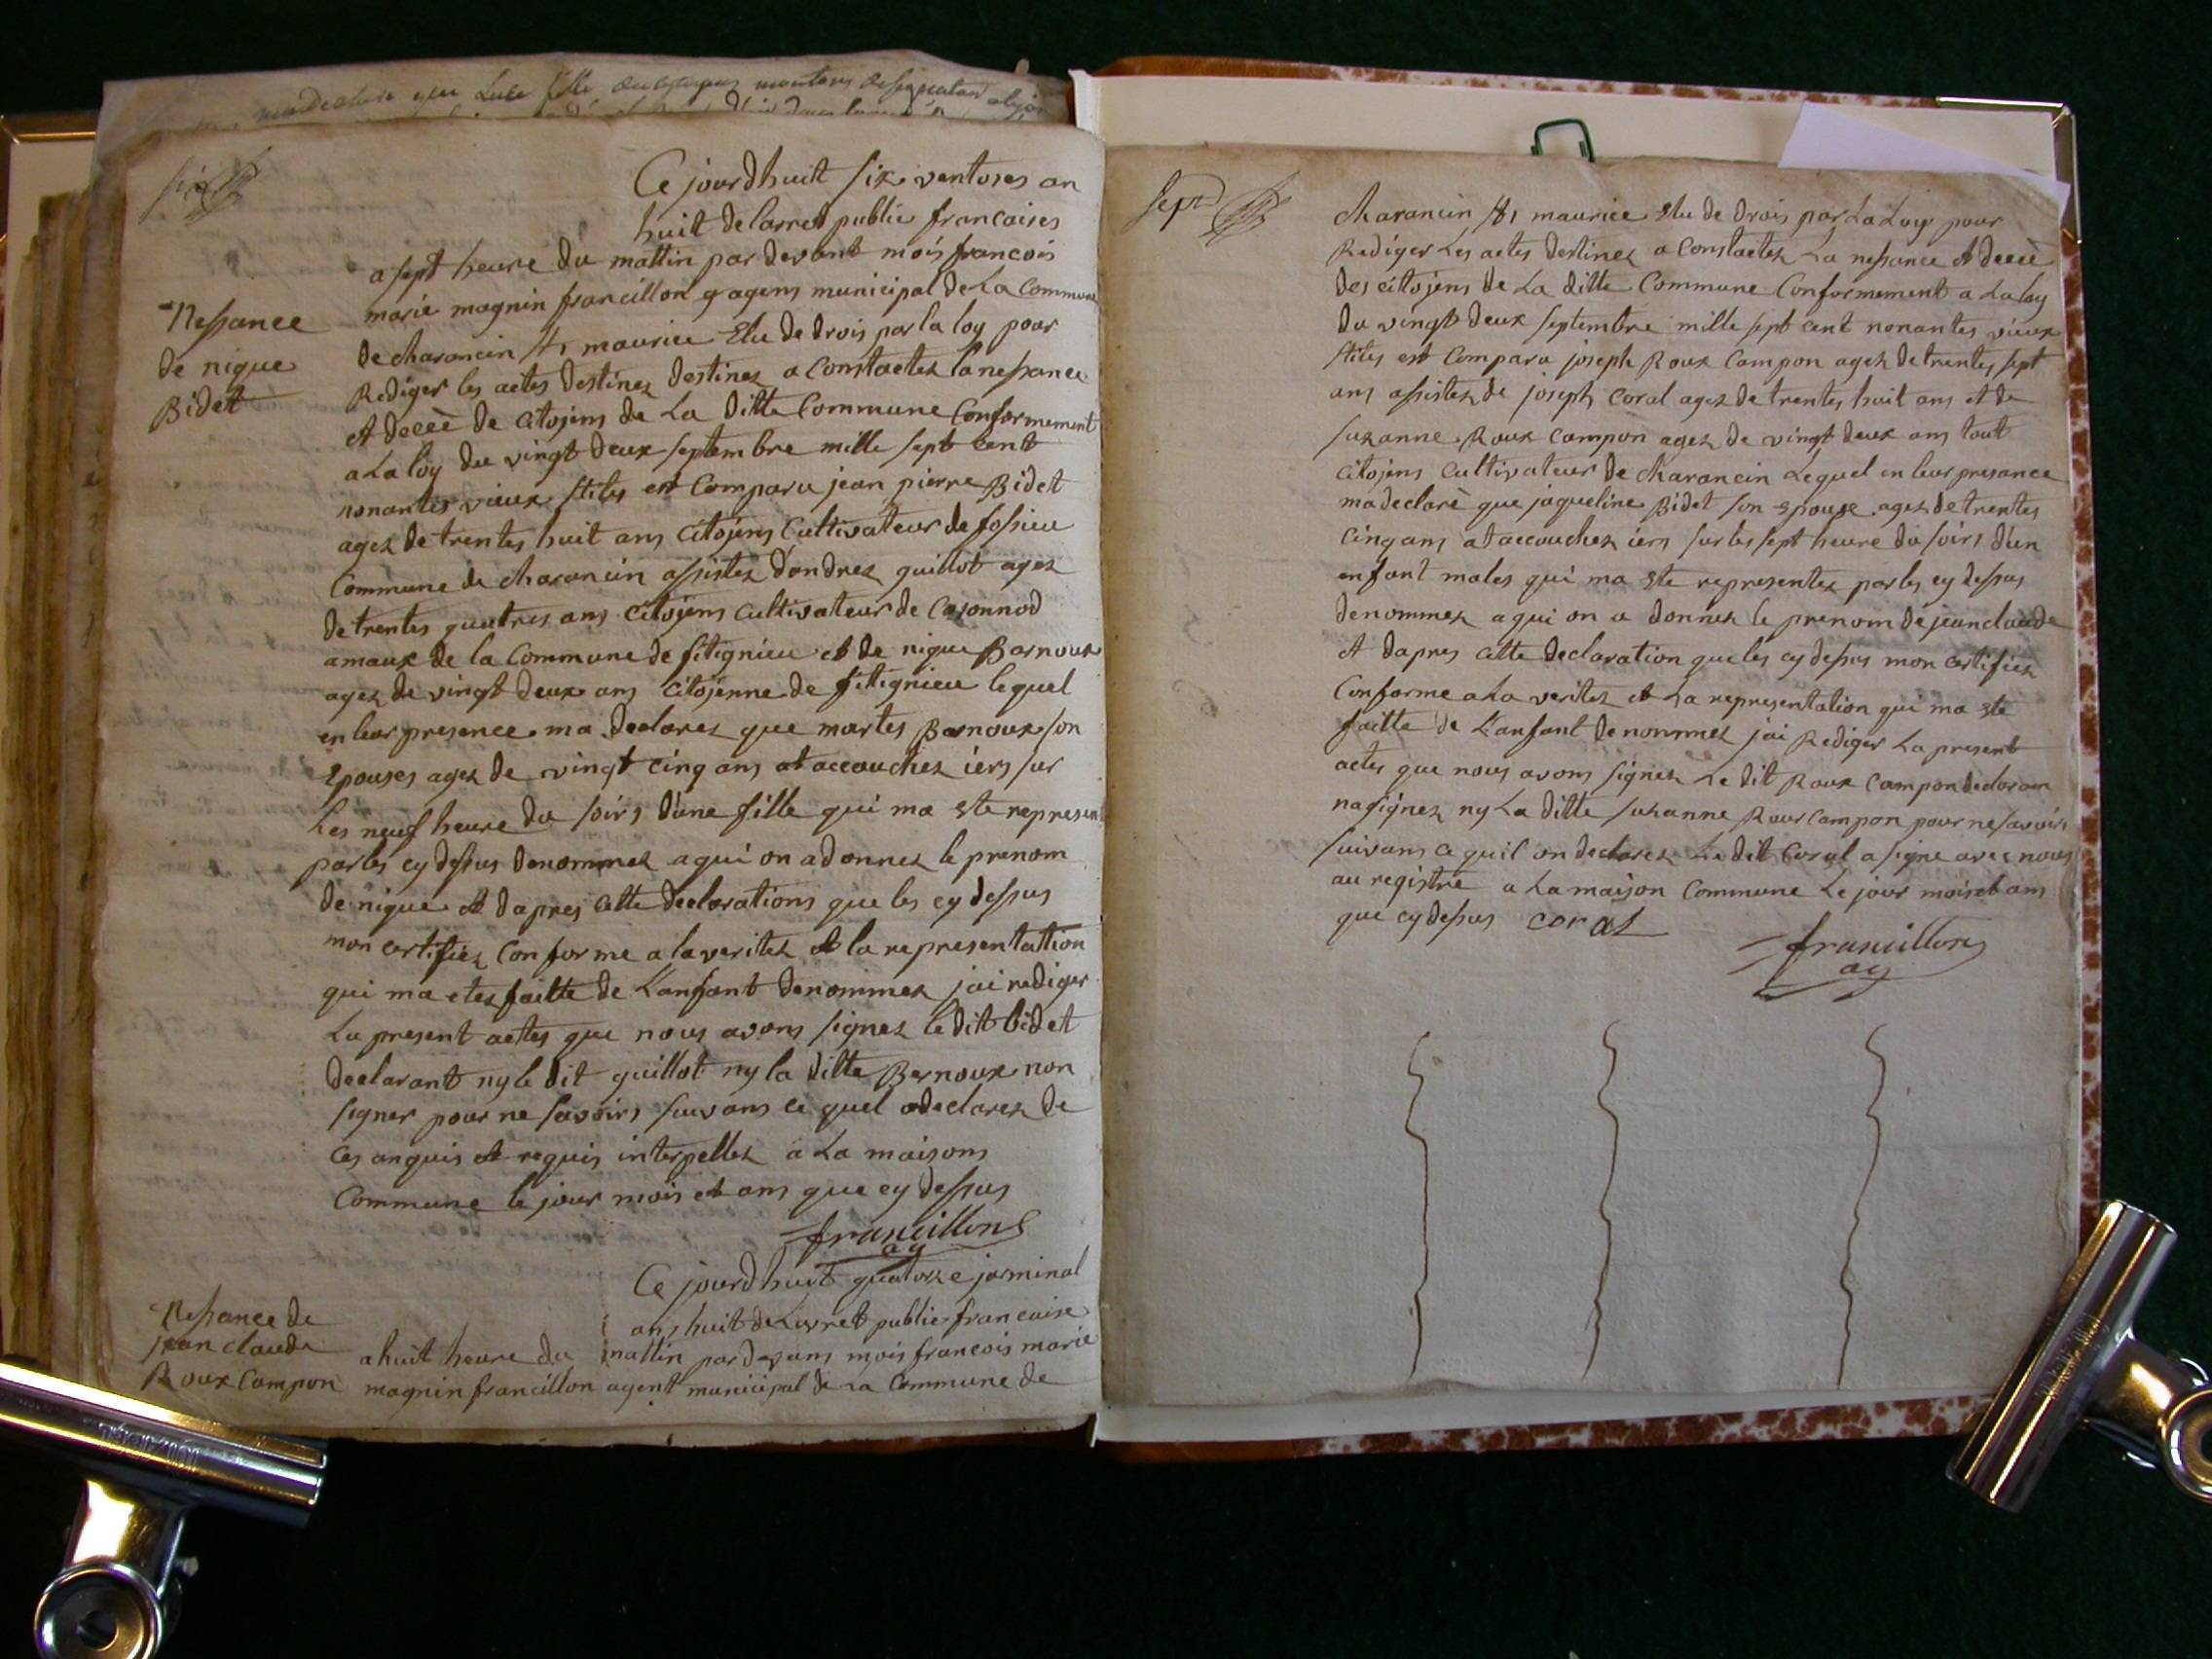 madeclare que Luce fille du citoyens
six
Ce jourdhuit six ventoses an
huit delarret public francaises
a sept heure du mattin par devant mois francois
marie magnin francillon agens municipal de La Commune
de charancin st maurice Elu de drois par la loy pour
Rediger les actes destinez destinez a Constactez la nessance
et deceè de citojens de La ditte Commune Conformement
a La loy du vingt deux septembre mille sept cent
nonantes vieux stiles est Comparu jean pierre Bidet
agez de trentes huit ans citojens Cultivateur de fossieu
Commune de charancin assistez d'andrez guillot agez
de trentes quatres ans citojens cultivateur de Cazonnod
amaux de la Commune de fitignieu et de nique Barnoux
agez de vingt deux ans citojenne de fittignieu lequel
en leur presence ma declarez que martes Barnoux son
Epouses agez de vingt cinq ans at accouchez iers sur
Les neuf heure du soirs d'une fille qui ma este represen
par les cy dessus denommez a qui on a donnez le prenom
de nique et dapres cette declarations que les cy dessus
mon certifiez Conforme a la veritez et la representattion
qui ma etez faitte de L'anfant denommez jai rediger
Lu present actes que nous avons signez le dit bidet
declarant ny le dit guillot ny la ditte Bernoux non
signer pour ne savoirs suivans ce quel adeclarez de
ces anquis et requis interpellez a La maisons
Commune le jour mois et ans que cy dessus
francillon
ag
Nessance
de nique
Bidet
Ce jourdhuit quatorze jerminal
ans huit de Larret public francaise
a huit heure du mattin par devans mois francois marie
magnin francillon agent municipal de La Commune de
Nessance de
jean claude
Roux Campon
sept
charancin st maurice Elu de drois par La Loy pour
Rediger Les actes destinez a Constactez La nessance et deceè
des citojens de La ditte Commune Conformement a La loy
du vingt deux septembre mille sept cent nonantes vieux
stiles est Comparu joseph Roux Campon agez de trentes sept
ans assistez de joseph Coral agez de trentes huit ans et de
suzanne Roux Campon agez de vingt deux ans tout
citojens cultivateur de charancin Lequel en leur presance
ma declarè que jaqueline Bidet son Epouse agez de trentes
cinq ans at accouchez iers sur les sept heure du soirs d'un
enfant males qui ma este representez par les cy dessus
denommez a qui on a donnez le prenom de jean claude
et dapres cette declaration que les cy dessus mon certifiez
Conforme a La veritez et La representation qui ma este
faitte de L'anfant denommez jai Rediger La present
actes que nous avons signez Le dit Roux Campon declaran
na signez ny La ditte suzanne Roux Campon pour ne savoirs
suivans ce quil on declarez Le dit Coral a signe avec nous
au registre a La maison Commune Le jour mois et ans
que cy dessus coral
francillon
ag